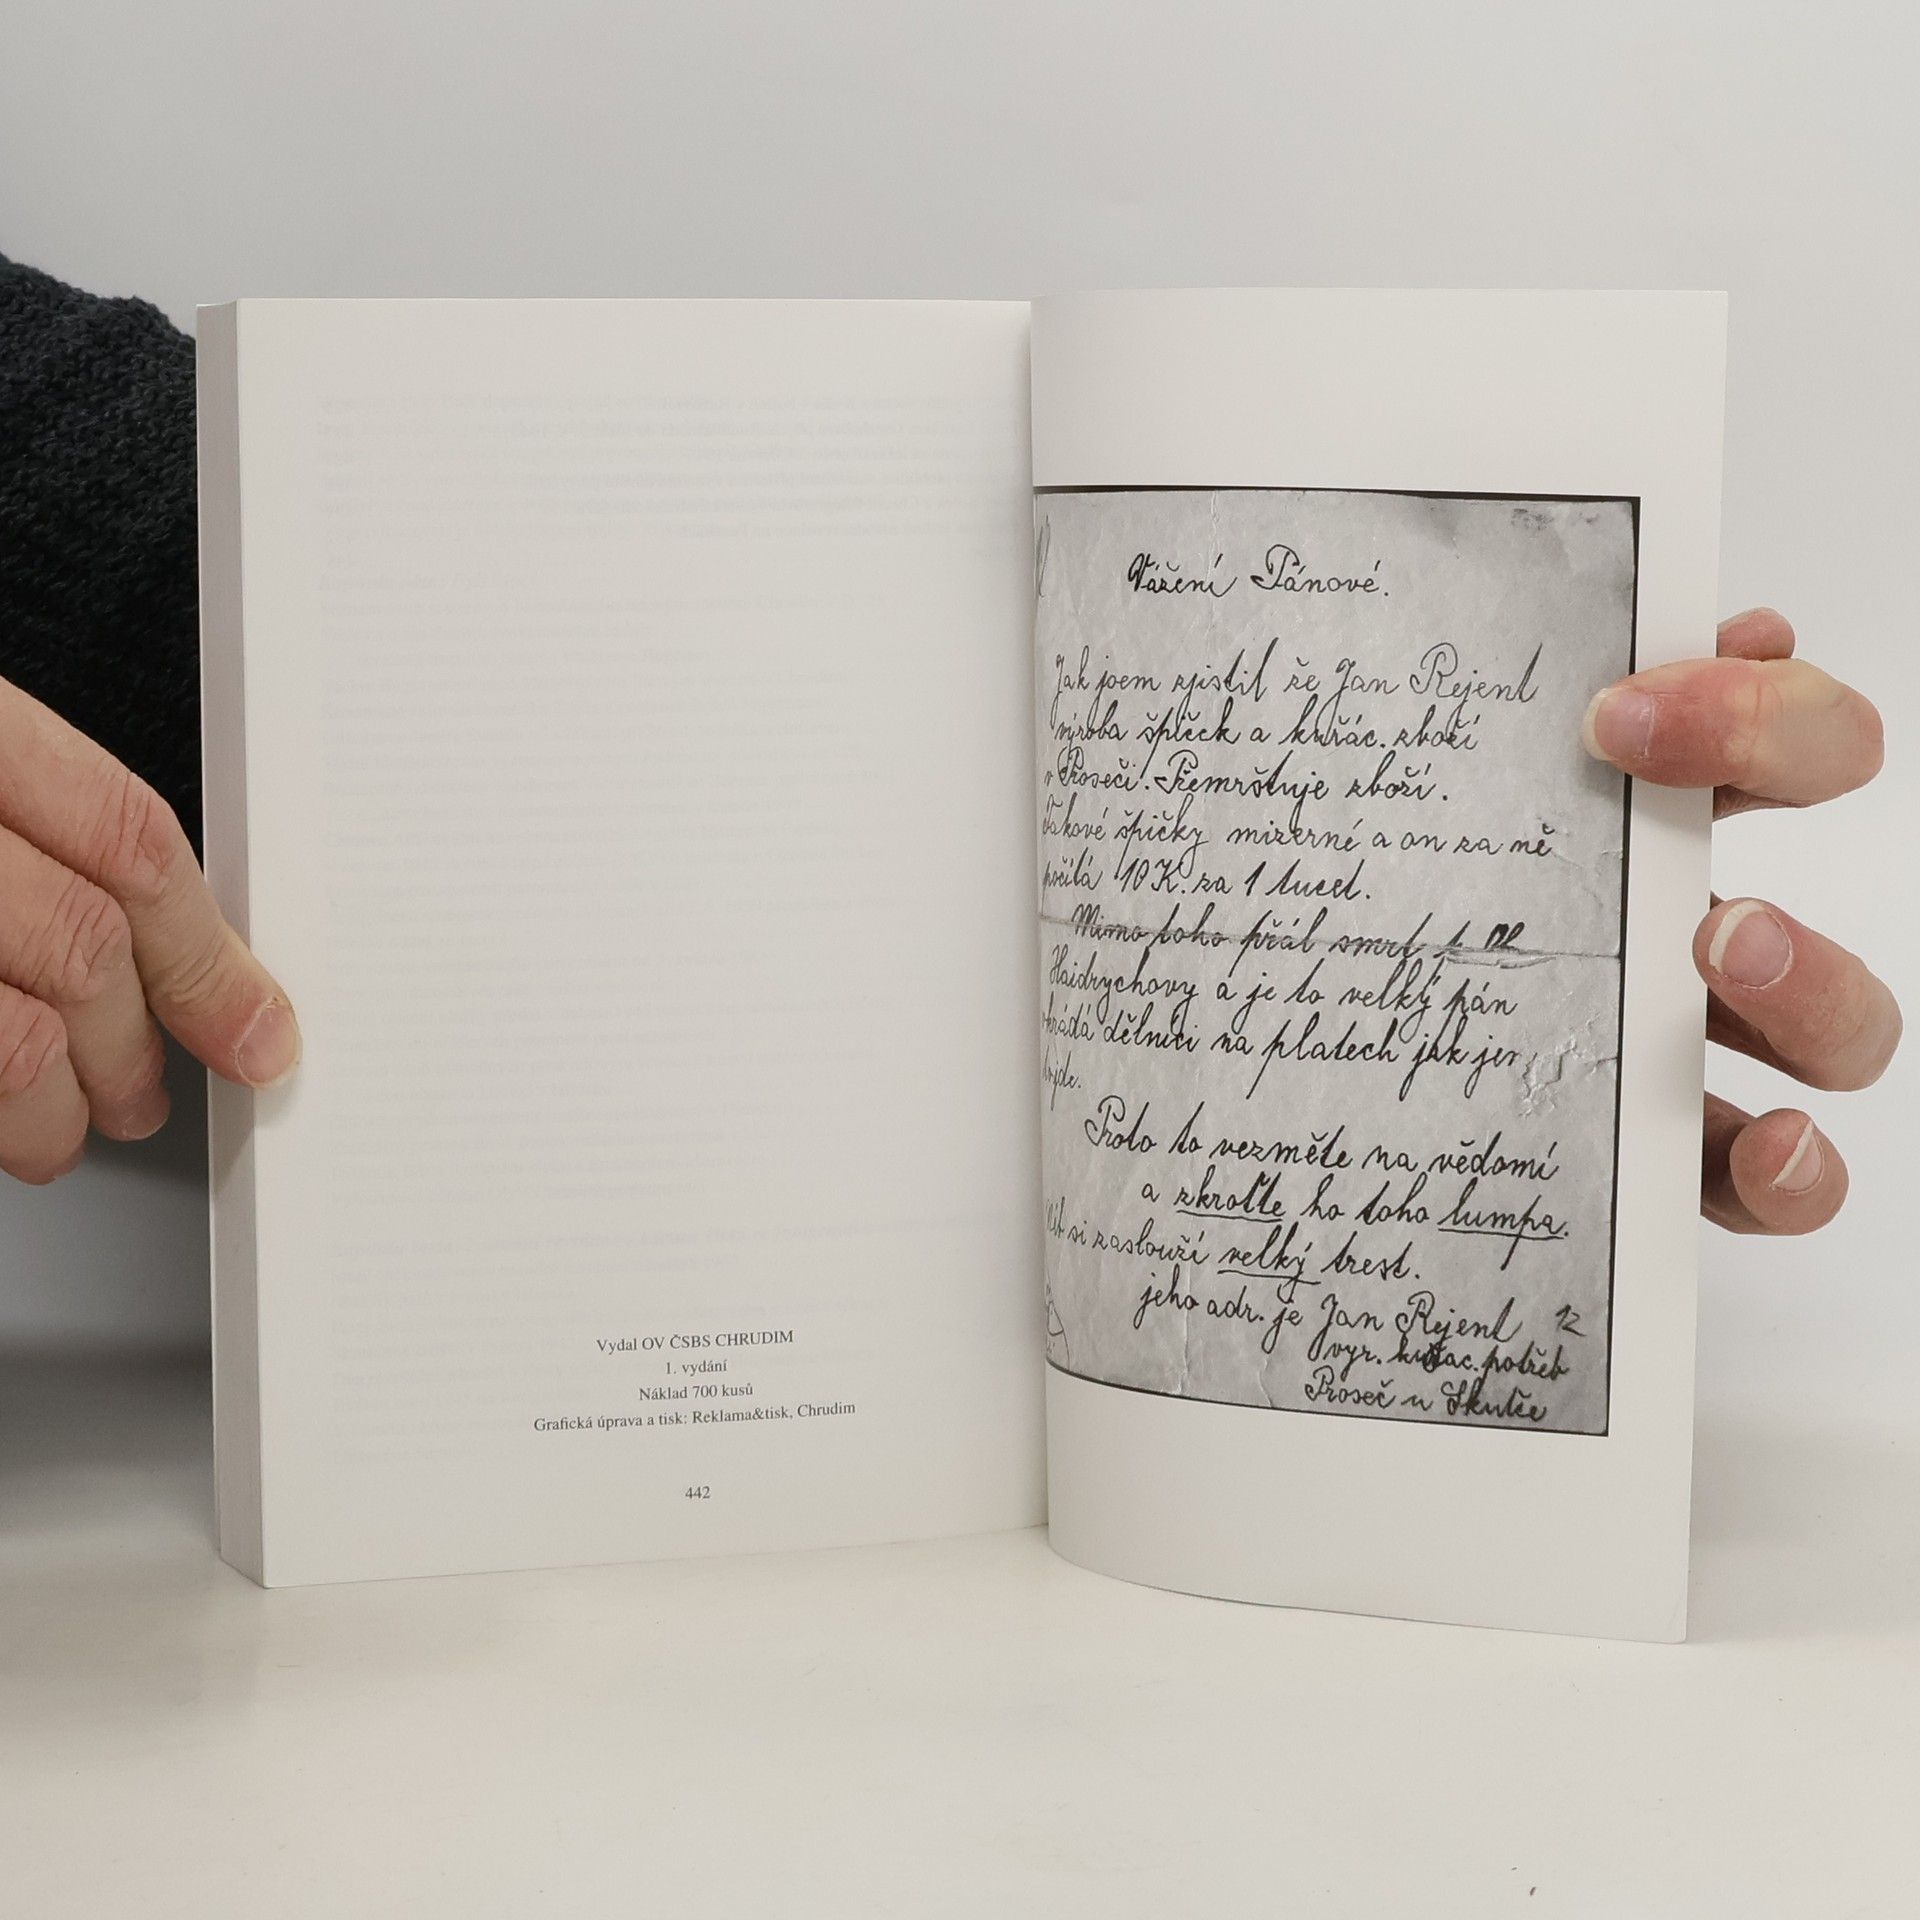 Vydal OV ČSBS CHRUDIM
1. vydání
Náklad 700 kusů
Grafická úprava a tisk: Reklama&tisk, Chrudim
442
Vážení Pánové.
Jak jsem zjistil že Jan Rejent
výroba špiček a kuřác. zboží
v Proseči. Přemrštuje zboží.
Takové špičky mizerné a on za ně
počítá 10 K. za 1 tucet.
Mimo toho přál smrt
Haidrychovy a je to velký pán
okrádá dělníci na platech jak jen
dojde.
Proto to vezměte na vědomí
a zkroťte ho toho lumpa.
si zaslouží velký trest.
jeho adr. je Jan Rejent 12
vyr. kuřac. potřeb
Proseč u Skutče